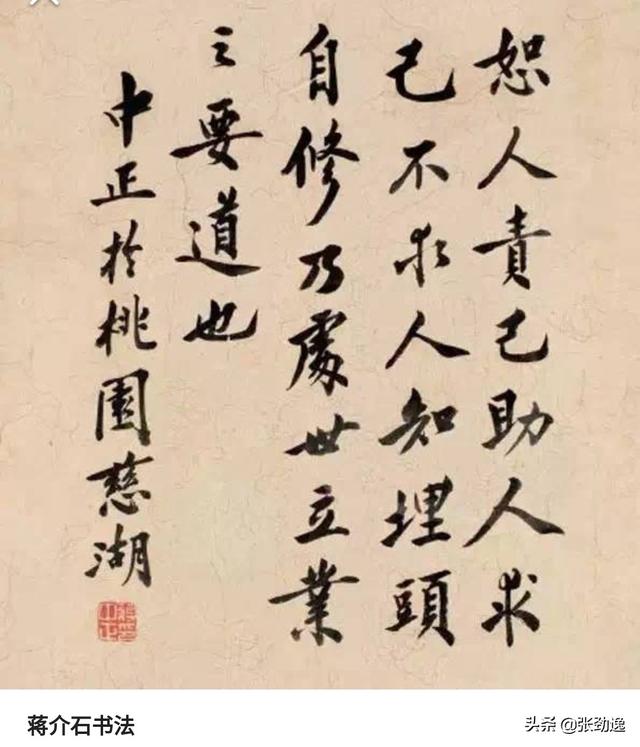 恕人責己助人求
己不求人知埋頭
自修乃處世立業
之要道也
中正於桃園慈湖
蒋介石书法
头条 @张劲逸